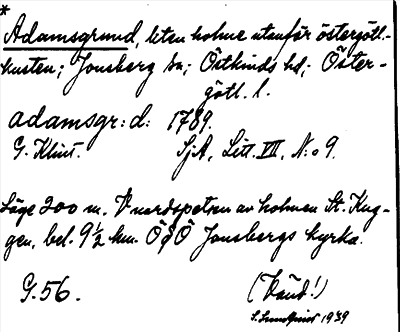 *
Adamsgrund, liten holme utanför östergötl.-
kusten; Jonsberg sn; Östkinds hd; Öster-
götl. l.
adamsgr:d: 1789.
G. Klint. SjA, Litt. VII, N:o 9.
Läge 200 m. V nordspetsen av holmen St. Kug-
gen, bel. 9½ km. ÖSÖ Jonsbergs kyrka.
G. 56. (Känd!)
S. Lundqvist 1939